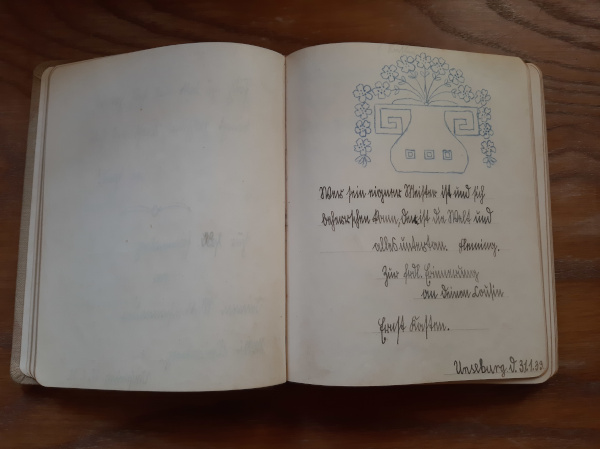 Wer sein eigner Meister ist und sich
beherrschen kann, dem ist die Welt und
alles untertan. Fleming.
Zur frdl. Erinnerung
an deinen Cousin
Ernst Kasten.
Unseburg d. 31.1.33